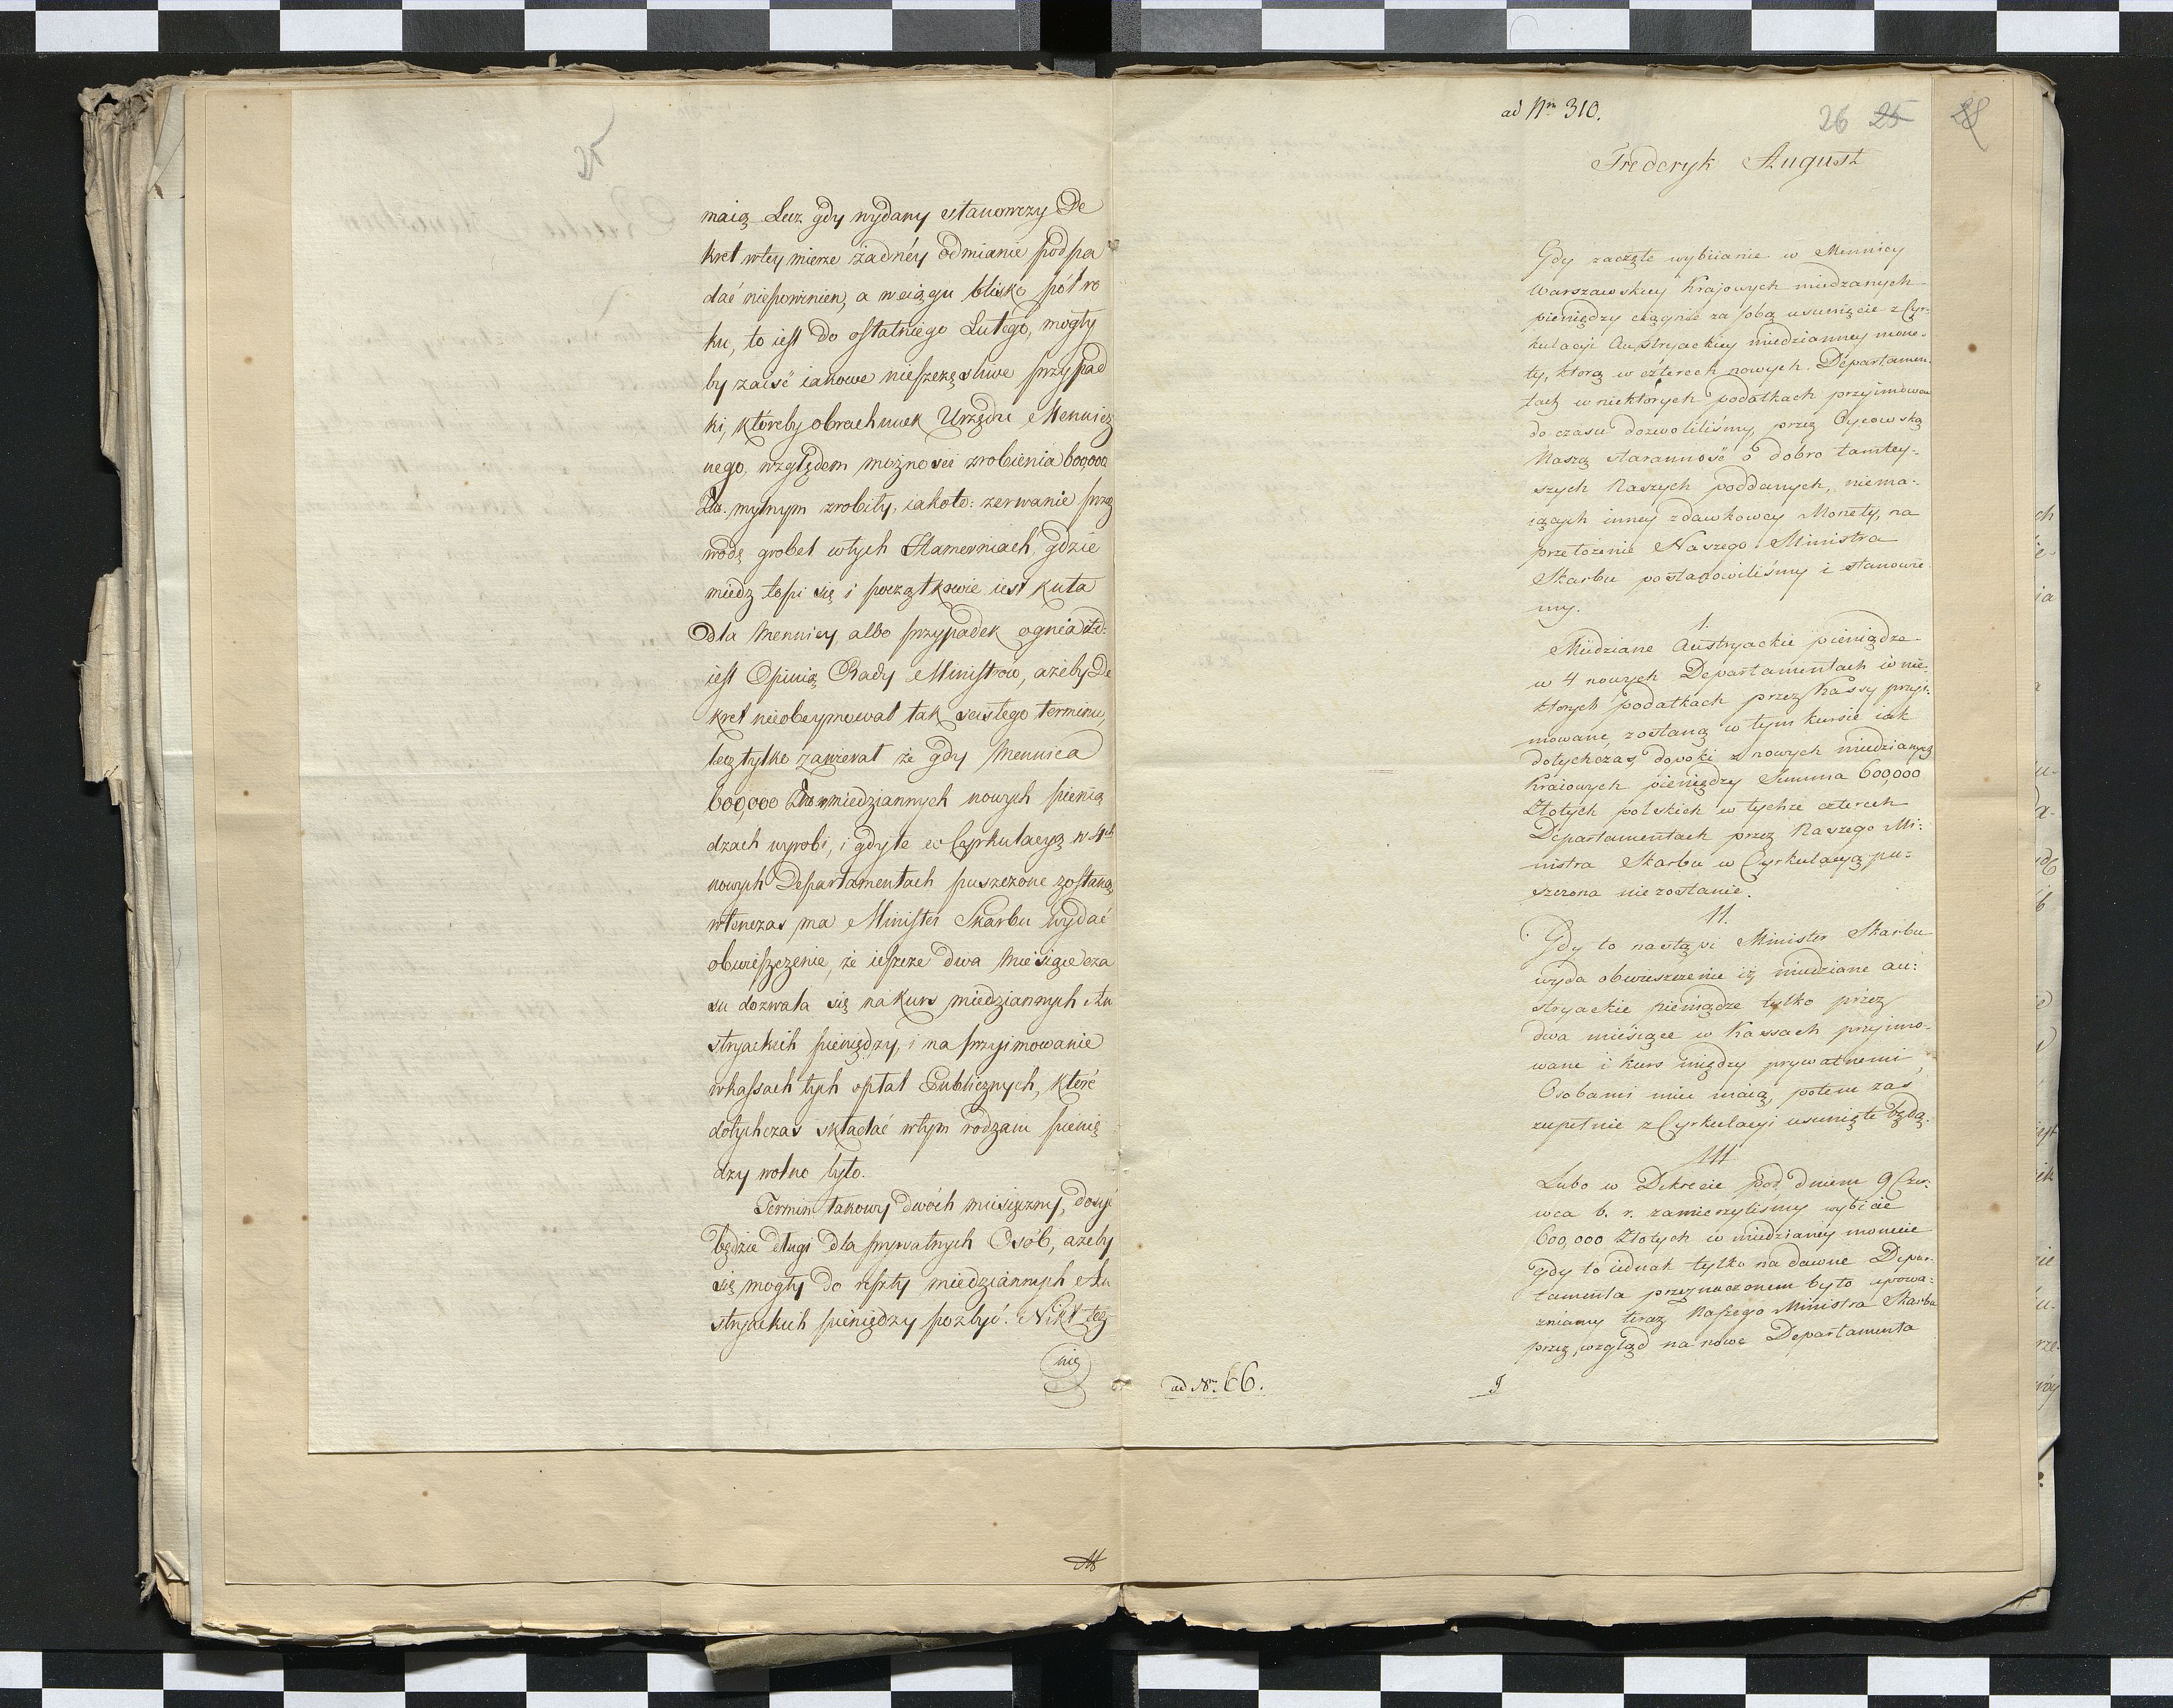 25
maią Lecz gdy wydany stanowczy De
kret wtey mierze żadnéy odmianie podpa
dać niepowinien, a wciągu blisko pół ro
ku, to iest do ostatniego Lutego, mogły
by zaiść iakowe nieszczęśliwe przypad
ki, któreby obrachunek Urzędu Mennicz
nego, względem możności zrobienia 600,000
Złł. mylnym zrobiły, iakoto: zerwanie przez
wodę grobel wtych Hamerniach, gdzie
miedz topi się i początkowie iest kuta
dla Mennicy, albo przypadek ognia itd:
iest Opinią Rady Ministrów, ażeby De
kret nieobeymował tak ścisłego terminu,
lecz tylko zawierał że gdy Mennica
600,000 Złł wmiedziannych nowych pienią
dzach wyrobi, i gdy te w Cyrkulacyą w 4ch
nowych Departamentach puszczone zostaną,
wtenczas ma Minister Skarbu wydać
obwieszczenie, że ieszcze dwa Miesiące cza
su dozwala się na kurs miedziannych Au
stryackich pieniędzy, i na przyimowanie
wkassach tych opłat Publicznych, które
dotychczas składać wtym rodzaiu pienię
dzy wolno było.
Termin takowy dwóch miesięczny, dosyć
będzie długi dla prywatnych Osób, ażeby
się mogły do reszty miedziannych Au
stryackich pieniędzy pozbyć. Nikt też
nie
ad Nr 310.
26 25 28
Frederyk August
Gdy zaczęte wybiianie w Mennicy
Warszawskiey Krajowych miedzanych
pieniędzy ciągnie za sobą usunięcie z Cyr:
kulacyi Austryackiey miedzianney mone-
ty, ktorą w czterech nowych Departamen.
tach w niektórych podatkach przyimować
do czasu dozwoliliśmy, przez Oycowską
Naszą staranność o dobro tamtey:
szych Naszych poddanych, niema-
iących inney zdawkowey Monety, na
przełożenie Naszego Ministra
Skarbu postanowiliśmy i stanowie
my.
I.
Miedziane Austryackie pieniądze
w 4 nowych Departamentach w nie.
ktorych podatkach przez Kassy przyi:
mowane zostaną w tym kursie iak
dotychczas, dopoki z nowych miedzianych
Kraiowych pieniędzy Summa 600,000
Złotych polskich w tychże czterech
Departamentach przez Naszego Mi:
nistra Skarbu w Cyrkulacyą pu-
szczona nie zostanie.
II.
Gdy to nastąpi Minister Skarbu
wyda obwieszczenie iż miedziane au:
stryackie pieniądze tylko przez
dwa miesiące w Kassach przyimo-
wane i kurs między prywatnemi
Osobami mieć maią, potem zaś
zupełnie z Cyrkulacyi usunięte będą.
III
Lubo w Dekrecie pod dniem 9 Czer:
wca b. r. zamierzyliśmy wybicie
600,000 Złotych w miedzianéy monecie
gdy to iednak tylko na dawne Depar-
tamenta przeznaczonem było upowa:
żniamy teraz Naszego Ministra Skarbu
przez wzgląd na nowe Departamenta
ad Nr. 66.